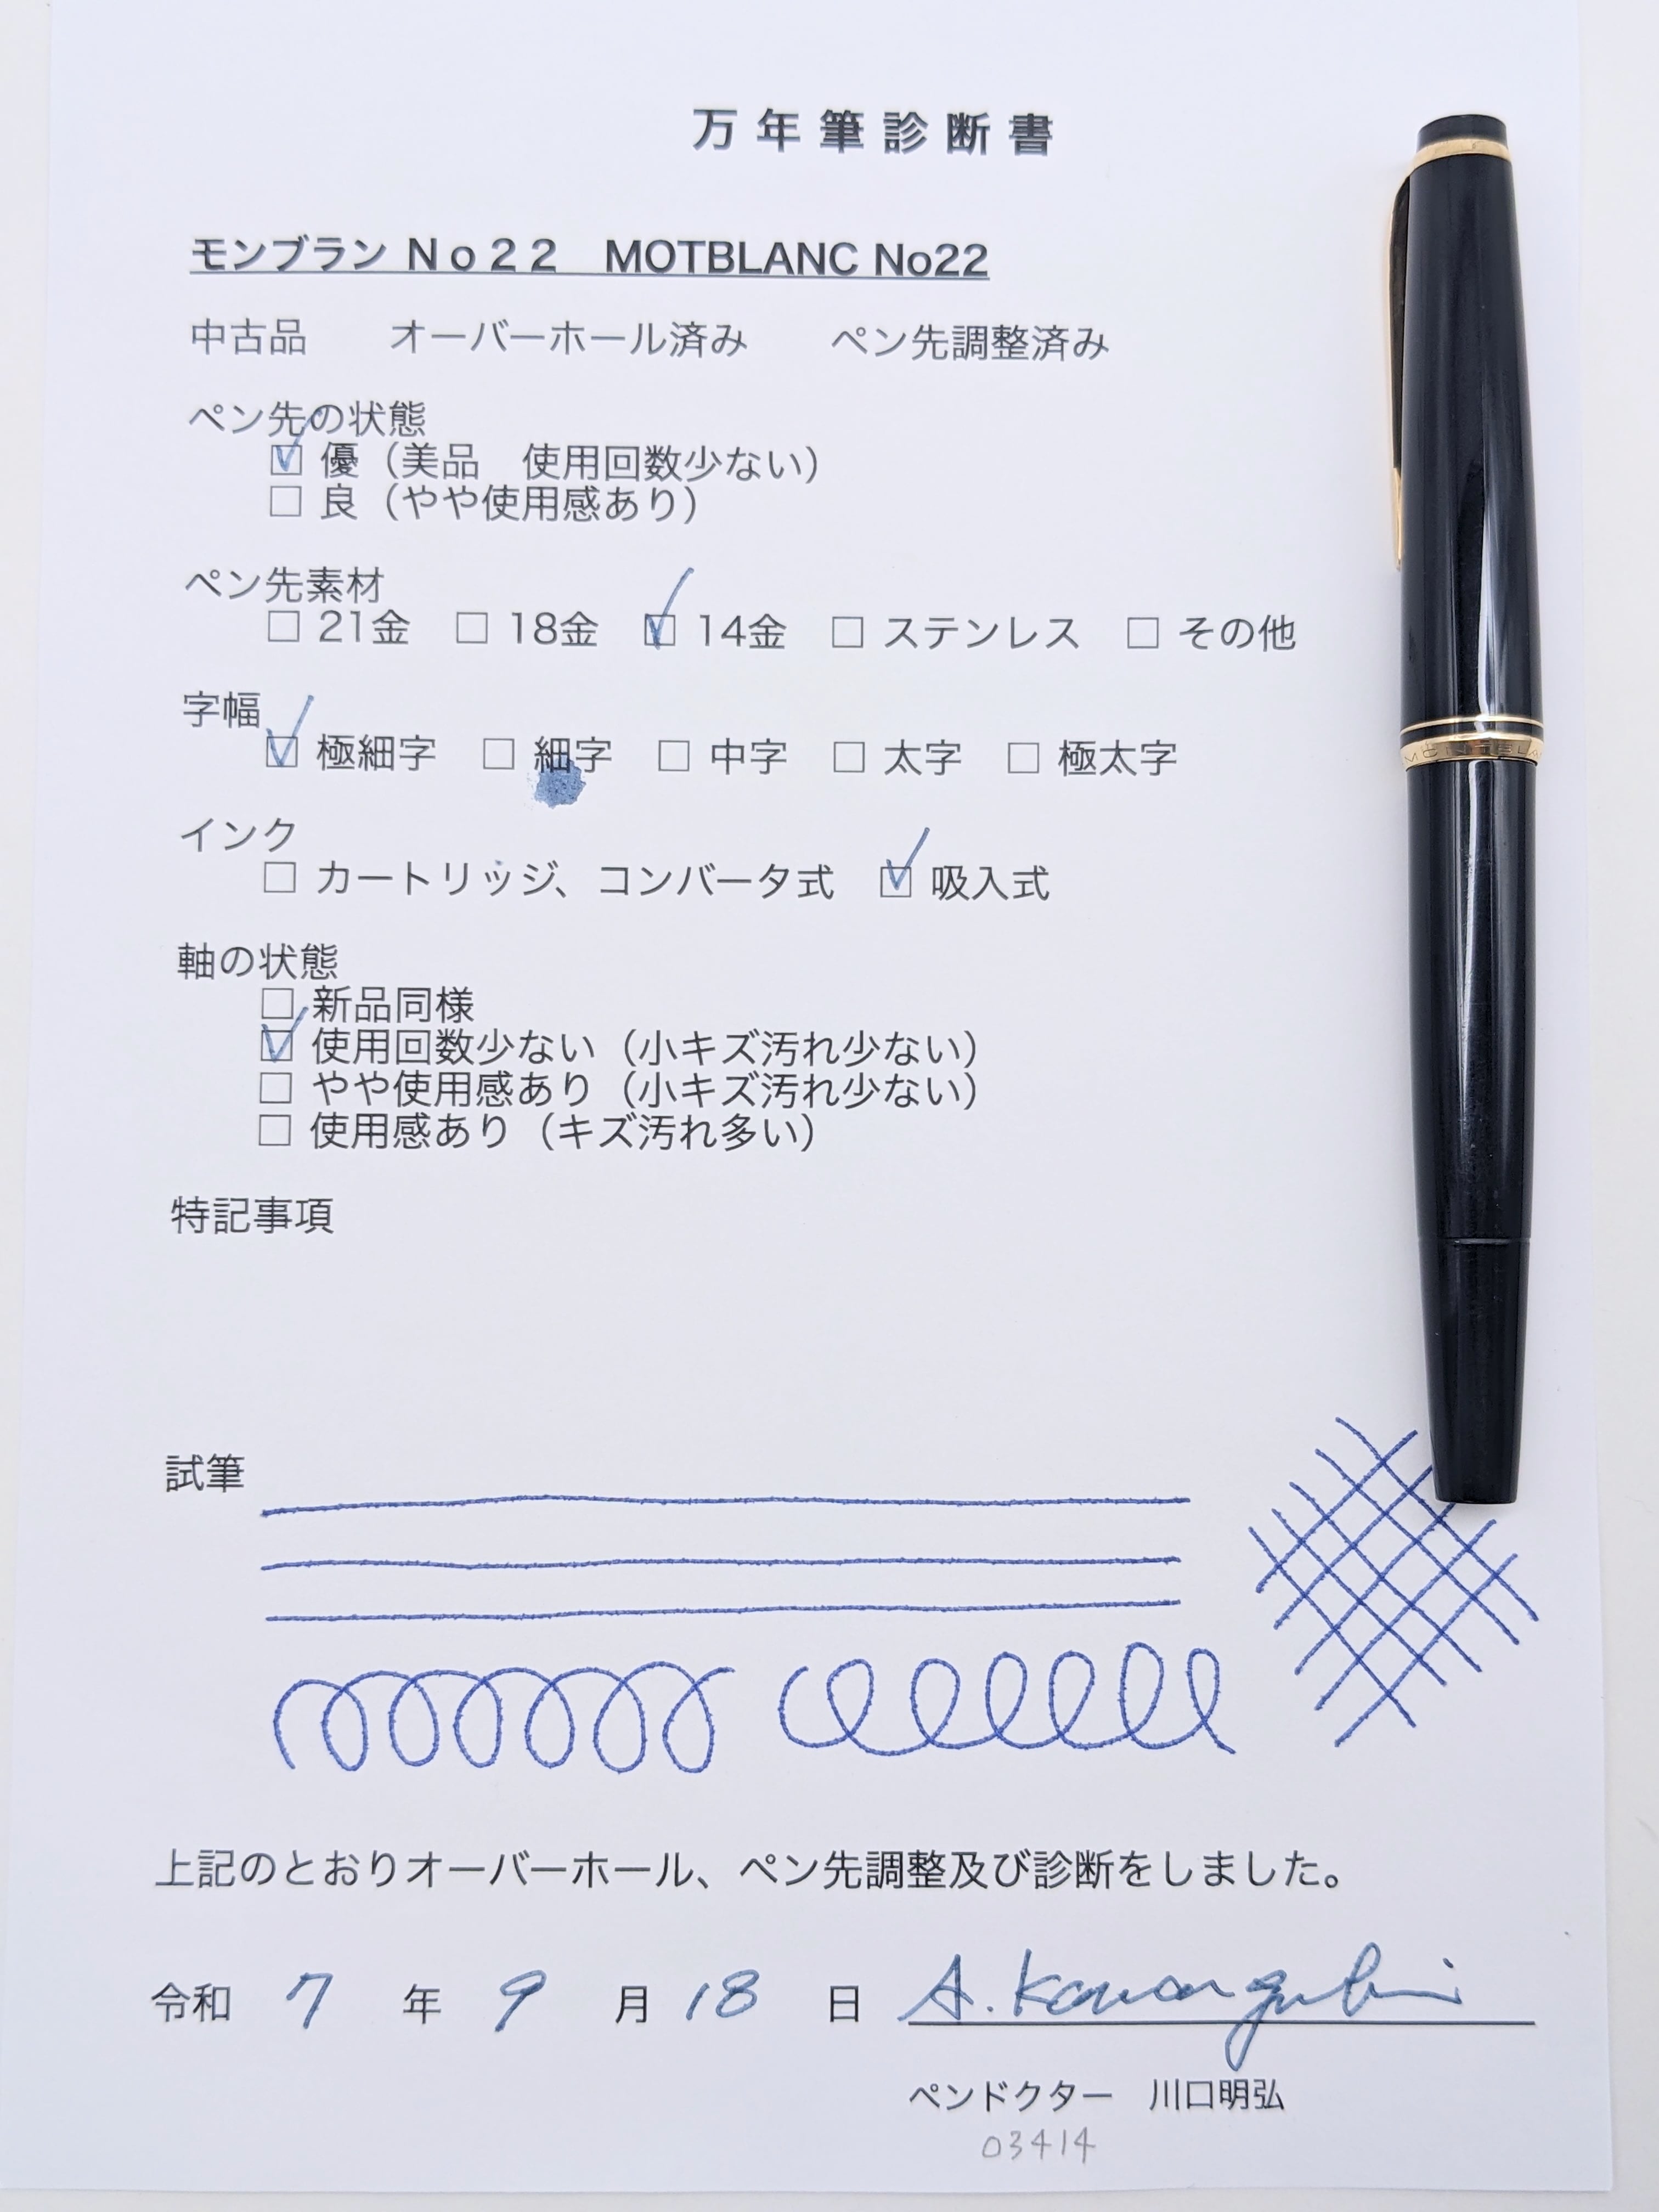 万年筆診断書
モンブラン No22 MOTBLANC No22
中古品 オーバーホール済み ペン先調整済み
ペン先の状態
☑ 優（美品 使用回数少ない）
□ 良（やや使用感あり）
ペン先素材
□ 21金 □ 18金 ☑ 14金 □ ステンレス □ その他
字幅
☑ 極細字 □ 細字 □ 中字 □ 太字 □ 極太字
インク
□ カートリッジ、コンバータ式 ☑ 吸入式
軸の状態
□ 新品同様
☑ 使用回数少ない（小キズ汚れ少ない）
□ やや使用感あり（小キズ汚れ少ない）
□ 使用感あり（キズ汚れ多い）
特記事項
試筆
上記のとおりオーバーホール、ペン先調整及び診断をしました。
令和 7 年 9 月 18 日 A. Kawaguchi
ペンドクター 川口明弘
03414